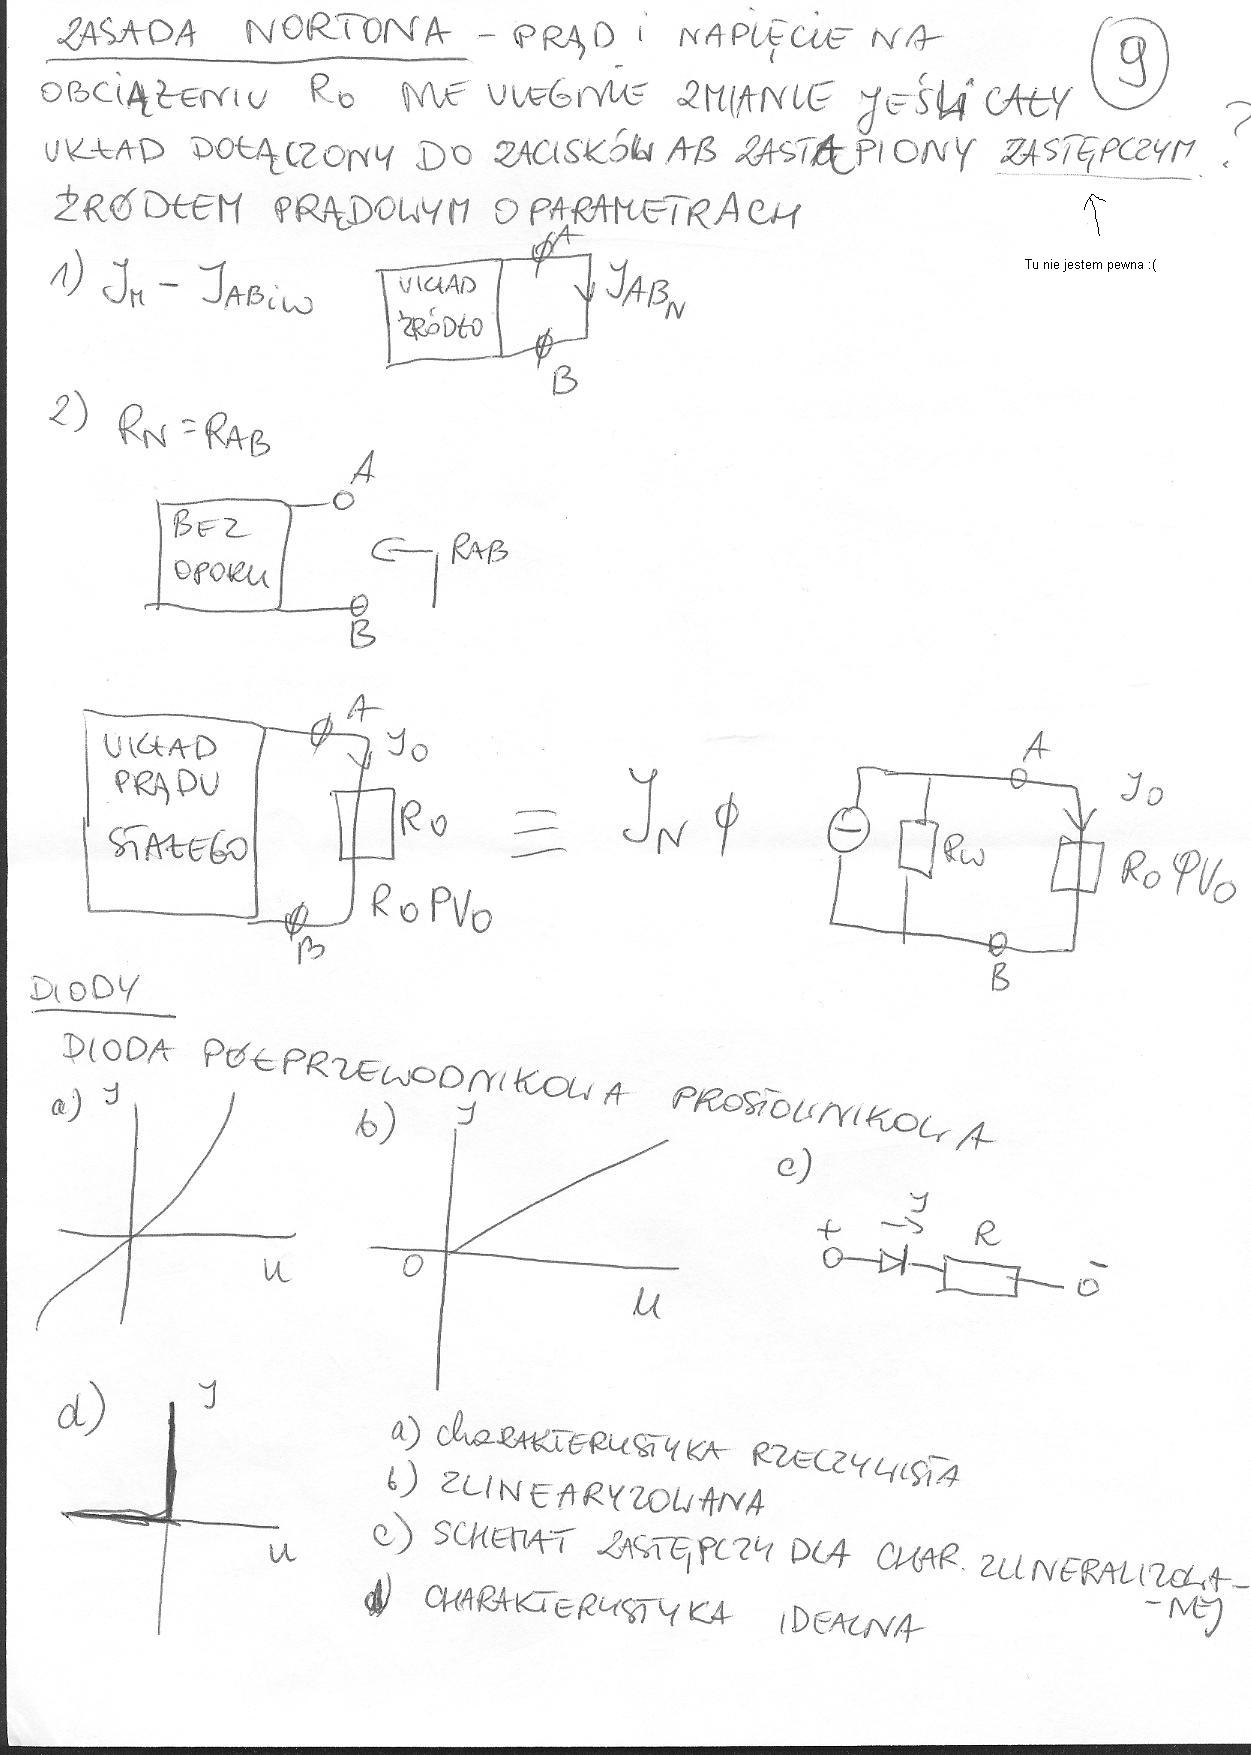 ZASADA NORTONA - PRĄD I NAPIĘCIE NA
OBCIĄŻENIU R0 NIE ULEGNIE ZMIANIE JEŚLI CAŁY
UKŁAD DOŁĄCZONY DO ZACISKÓW AB ZASTĄPIONY ZASTĘPCZYM ?
ŹRÓDŁEM PRĄDOWYM O PARAMETRACH
9
Tu nie jestem pewna :(
1) JM - JABiW
UKŁAD
ŹRÓDŁO
A
JABN
B
2) RN = RAB
A
BEZ
OPORU
RAB
B
UKŁAD
PRĄDU
STAŁEGO
A
J0
R0
R0 PV0
B
≡
JN
A
J0
RW
R0 PV0
B
DIODY
DIODA PÓŁPRZEWODNIKOWA PROSTOWNIKOWA
a) J
U
b) J
0
U
c)
+ J R -
d) J
U
a) CHARAKTERYSTYKA RZECZYWISTA
b) ZLINEARYZOWANA
c) SCHEMAT ZASTĘPCZY DLA CHAR. ZLINERALIZOWA-
-NEJ
d) CHARAKTERYSTYKA IDEALNA